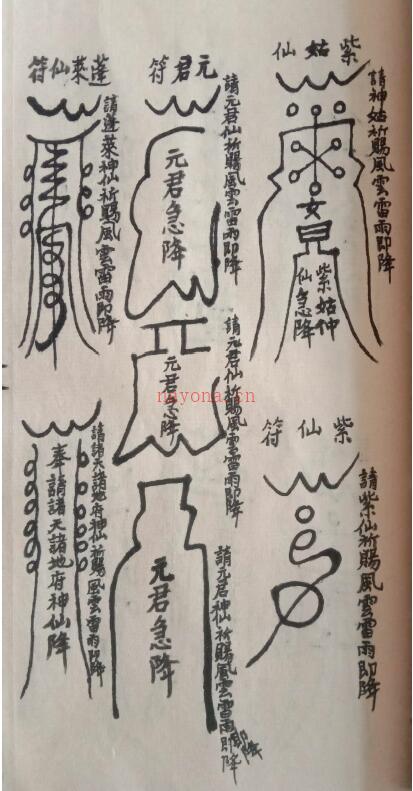 紫姑仙
請神姑祈賜風雲雷雨即降
女
紫姑仲
仙急降
紫仙符
請紫仙祈賜風雲雷雨即降
元君符
請元君仙祈賜風雲雷雨即降
元君急降
請元君仙祈賜風雲雷雨即降
元君急降
請元君神仙祈賜風雲雷雨即降
即降
元君急降
蓬萊仙符
請蓬萊神仙祈賜風雲雷雨即降
請諸天諸地府神仙祈賜風雲雷雨即降
奉請諸天諸地府神仙降
nayona.cn